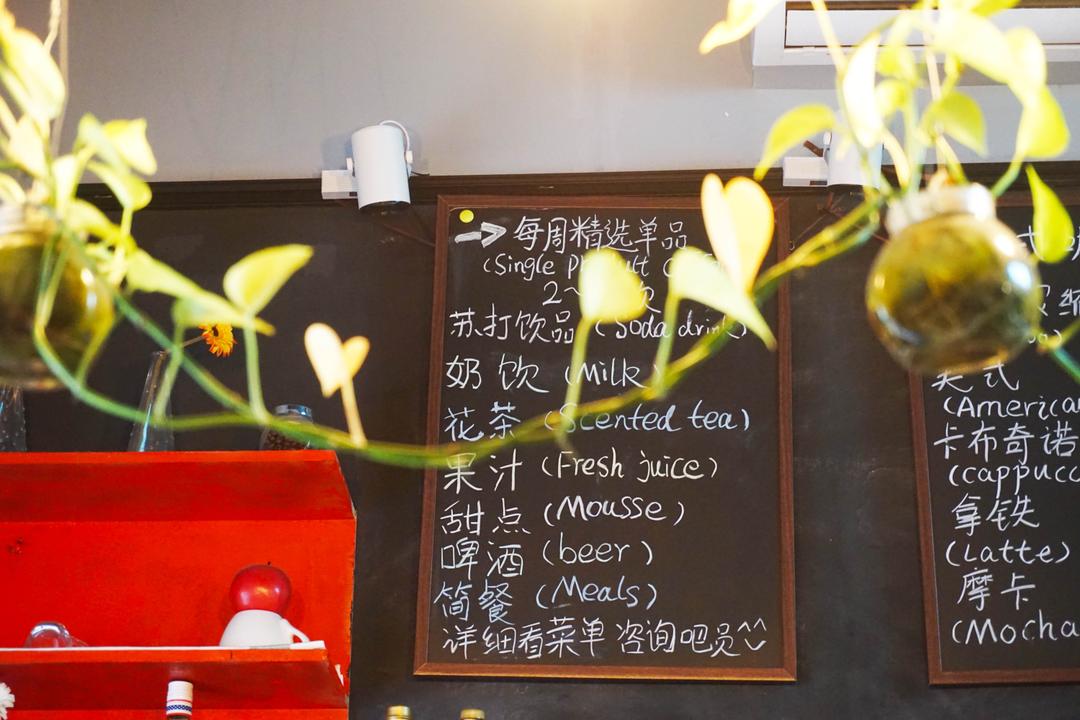 每周精选单品
(Single
2~
苏打饮品 (Soda drink)
奶饮 (Milk)
花茶 (Scented tea)
果汁 (Fresh juice)
甜点 (Mousse)
啤酒 (beer)
简餐 (Meals)
详细看菜单 咨询吧员^^
美式
(American
卡布奇诺
(cappucc
拿铁
(Latte)
摩卡
(Mocha